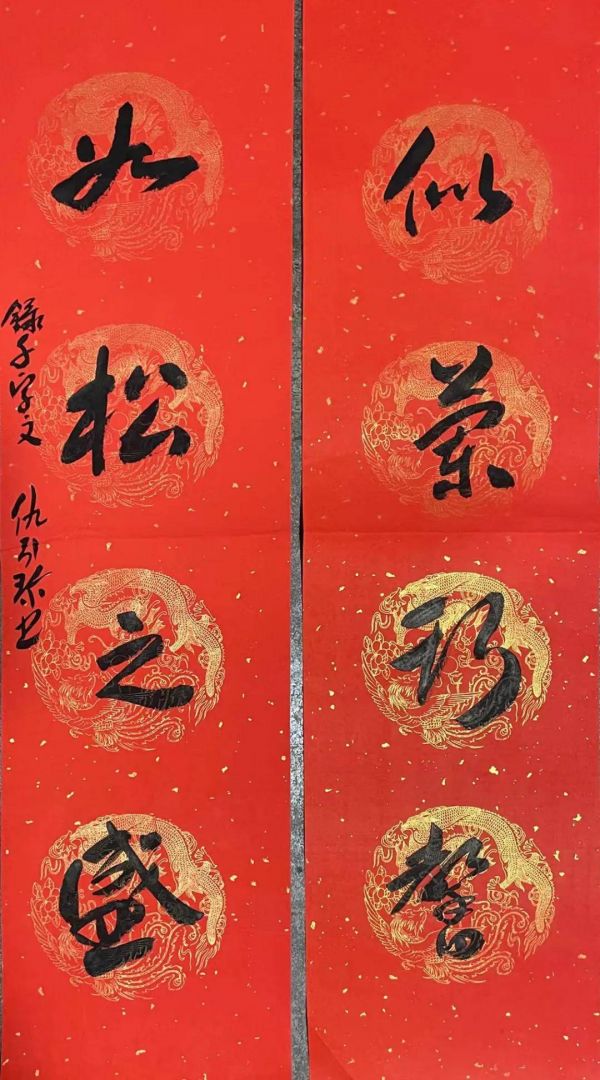 似蘭斯馨
如松之盛
錄千字文 仇引珍书